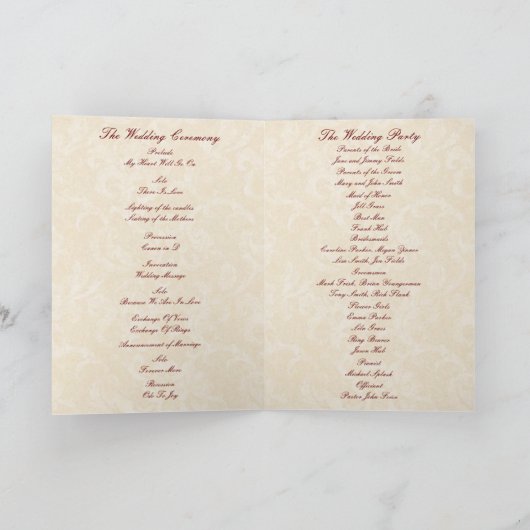 The Wedding Ceremony
Prelude
My Heart Will Go On
Solo
There Is Love
Lighting of the candles
Seating of the Mothers
Procession
Canon in D
Invocation
Wedding Message
Solo
Because We Are In Love
Exchange Of Vows
Exchange Of Rings
Announcement of Marriage
Solo
Forever More
Recession
Ode To Joy
The Wedding Party
Parents of the Bride
Jane and Jimmy Fields.
Parents of the Groom
Mary and John Smith
Maid of Honor
Jill Grass
Best Man
Frank Hub
Bridesmaids
Caroline Parker, Megan
Lisa Smith, Jen Fields
Groomsmen
Mark Fresh, Brian Youngerman
Tony Smith, Rich Plank
Flower Girls
Emma Parker
Solo Grass
Ring Bearer
Jason Hub
Pianist
Michael Splash
Officient
Pastor John